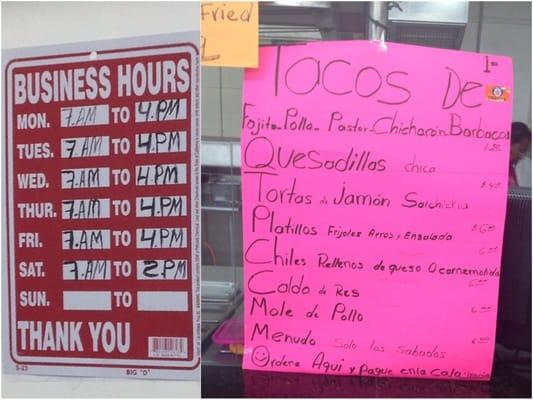 BUSINESS HOURS
MON. 7 AM TO 4.PM
TUES. 7 AM TO 4.PM
WED. 7 AM TO 4.PM
THUR. 7 AM TO 4.PM
FRI. 7 AM TO 4.PM
SAT. 7 AM TO 2.PM
SUN. TO
THANK YOU
S-23 BIG "D"
Fried
Tacos De
Fajita-Pollo-Pastor-Chicharón Barbacoa
Quesadillas chica
Tortas de Jamón Salchicha
Platillos Frijoles Arros y Ensalada
Chiles Rellenos de queso O carnemolida
Caldo de Res
Mole de Pollo
Menudo Solo los Sabados
Ordene Aqui y Pague enla Caja